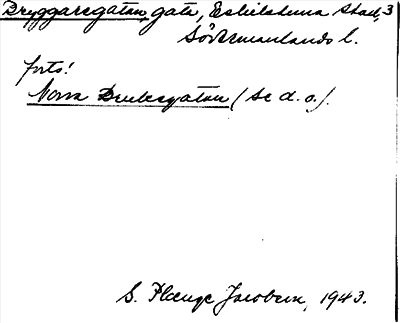 Bryggaregatan, gata, Eskilstuna stad, 3
Södermanlands l.
förts!
Norra Bruksgatan (se d. o.).
S. Plænge Jacobson, 1943.